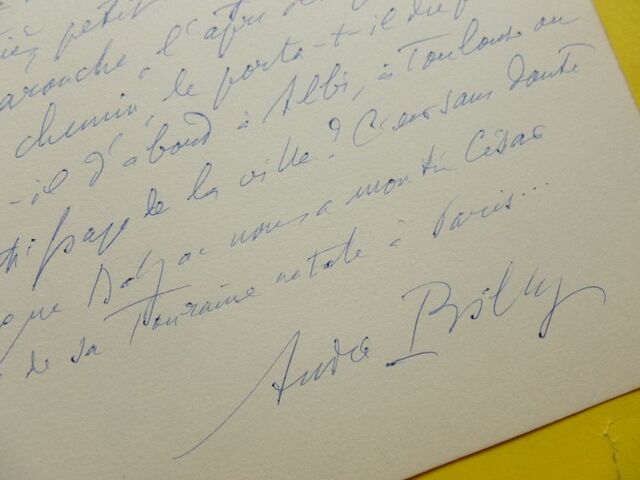 petit
l'a
chemin, le porta-t-il du
-il d'abord à Albi, à Toulouse ou
de la ville ? C'est sans doute
que Balzac nous a montré César
de sa Touraine natale à Paris...
André Billy